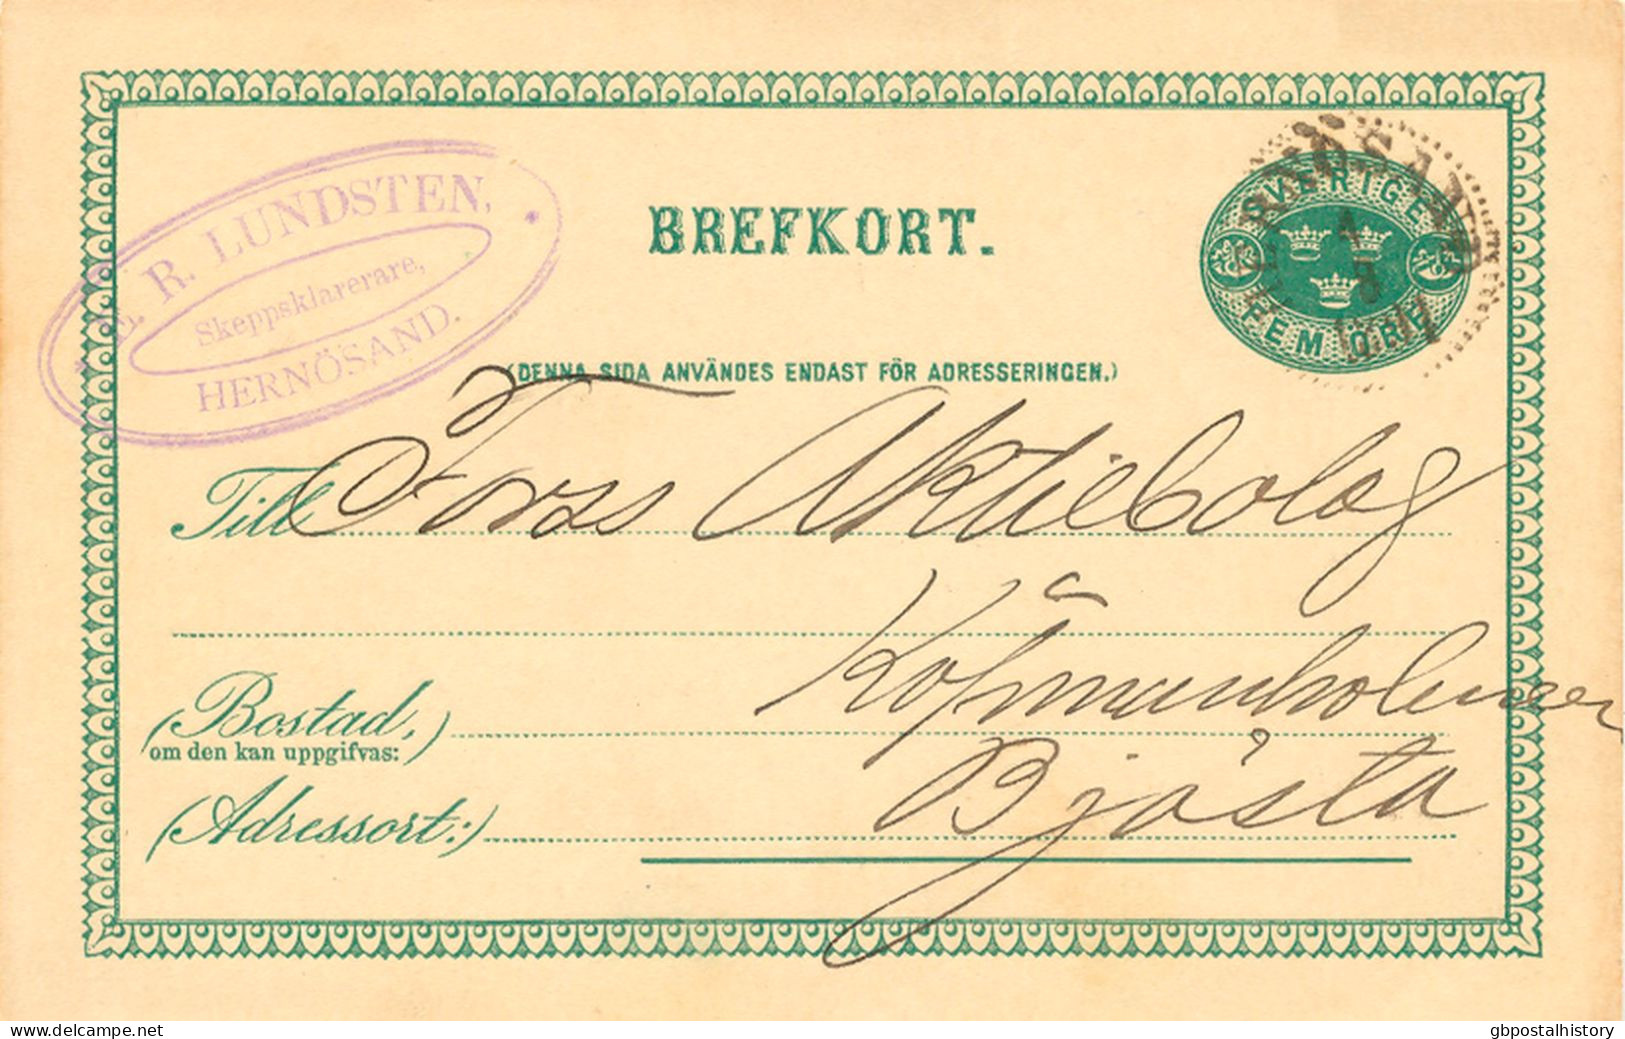 R. LUNDSTEN,
Skeppsklarerare,
HERNÖSAND.
BREFKORT.
SVERIGE
FEM ÖRE
(DENNA SIDA ANVÄNDES ENDAST FÖR ADRESSERINGEN.)
Till Forss Aktiebolag
Köpmanholmen
(Bostad,)
om den kan uppgifvas:
Bjästa
(Adressort:)
www.delcampe.net
gbpostalhistory